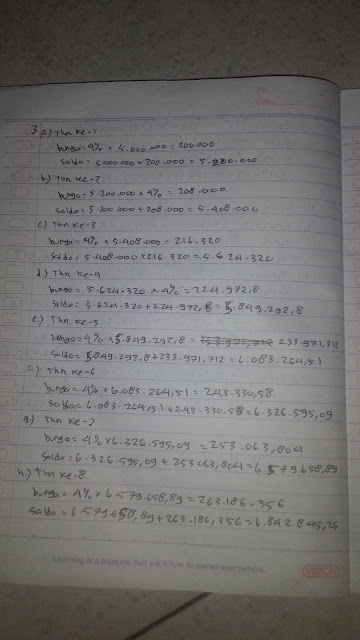 No:
Date:
3. a) Thn ke-1
bunga = 4% x 5.000.000 = 200.000
Saldo = 5.000.000 + 200.000 = 5.200.000
b) Thn ke-2
bunga = 5.200.000 x 4% = 208.000
Saldo = 5.200.000 + 208.000 = 5.408.000
c) Thn ke-3
bunga = 4% x 5.408.000 = 216.320
Saldo = 5.408.000 x 216.320 = 5.624.320
d) Thn ke-4
bunga = 5.624.320 x 4% = 224.972,8
Saldo = 5.624.320 + 224.972,8 = 5.849.292,8
e) Thn ke-5
bunga = 4% x 5.849.292,8 = 233.971,712
Saldo = 5.849.292,8 + 233.971,712 = 6.083.264,51
f) Thn ke-6
bunga = 4% x 6.083.264,51 = 243.330,58
Saldo = 6.083.264,51 + 243.330,58 = 6.326.595,09
g) Thn ke-7
bunga = 4% x 6.326.595,09 = 253.063,804
Saldo = 6.326.595,09 + 253.063,804 = 6.579.658,89
h.) Thn ke-8
bunga = 4% x 6.579.658,89 = 263.186,356
Saldo = 6.579.658,89 + 263.186,356 = 6.842.845,25
Learning is a measure that will follow its owner everywhere
VISION